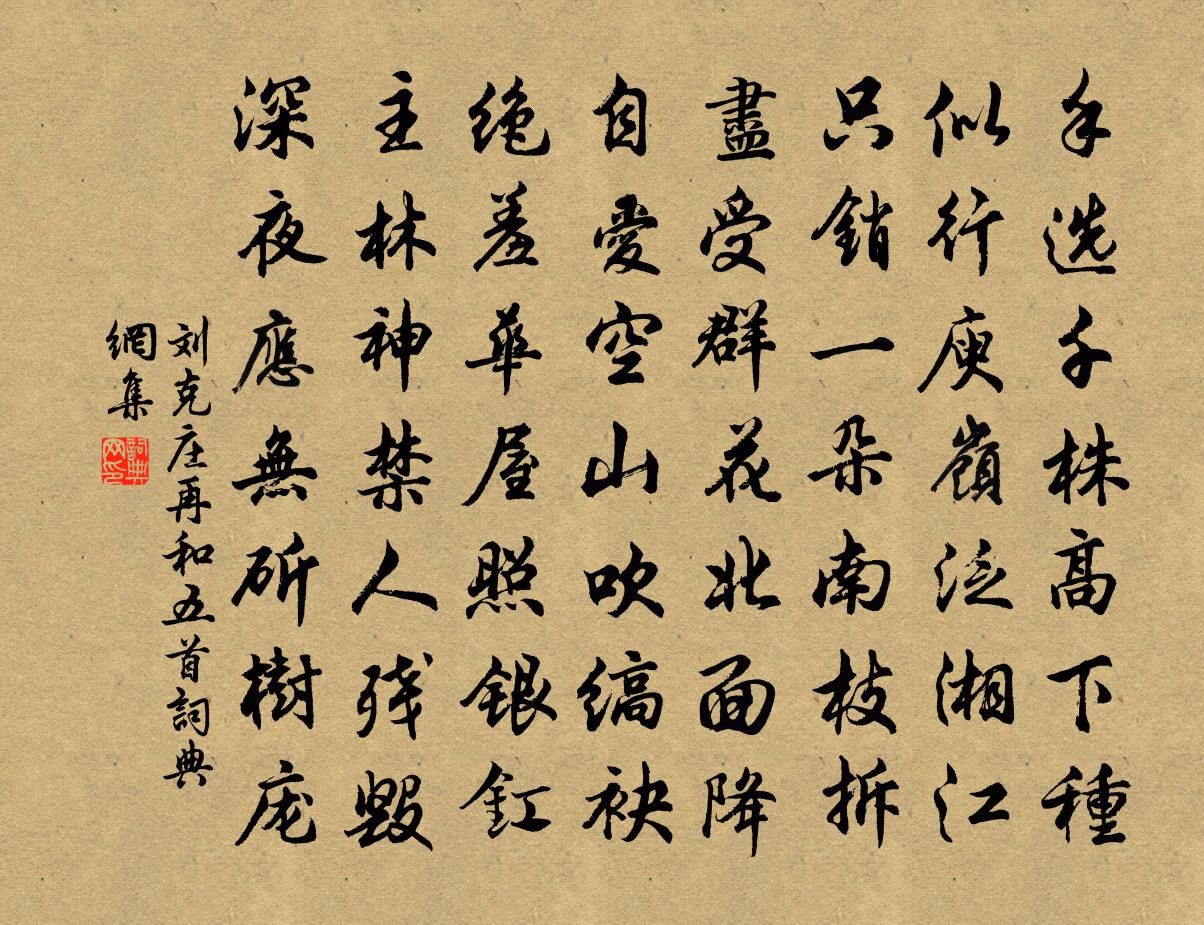 手选千株高下種
似行庾嶺泛湘江
只銷一朵南枝拆
盡受群花北面降
自愛空山吹縞袂
绝羞華屋照銀釭
主林神禁人残毀
深夜應無斫樹庬
刘克庄再和五首詞典
網集
詞典
网印